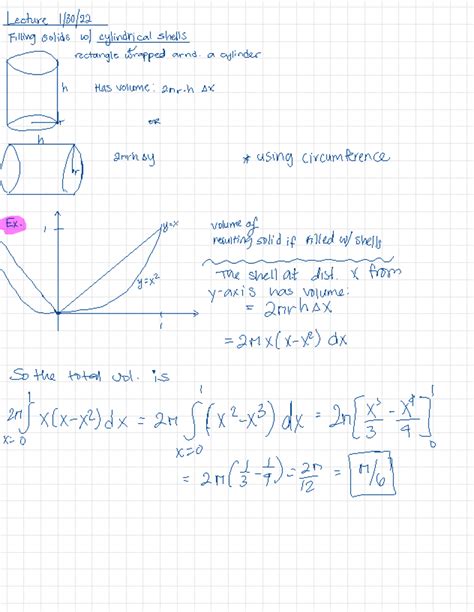 Lecture 1/30/22
Filling solids w/ cylindrical shells
rectangle wrapped arnd. a cylinder
h
Has volume: 2πr·h Δx
r
OR
h
2πrhΔy
* using circumference
r
Ex.
1
y=x
y=x²
1
volume of
resulting solid if filled w/ shells
The shell at dist. x from
y-axis has volume:
= 2πrhΔx
= 2πx(x-x²) dx
So the total vol. is
2π∫¹ₓ₌₀ x(x-x²)dx = 2π ∫¹ₓ₌₀ (x²-x³) dx = 2π[x³/3 - x⁴/4]¹₀
= 2π(1/3 - 1/4) = 2π/12 = π/6